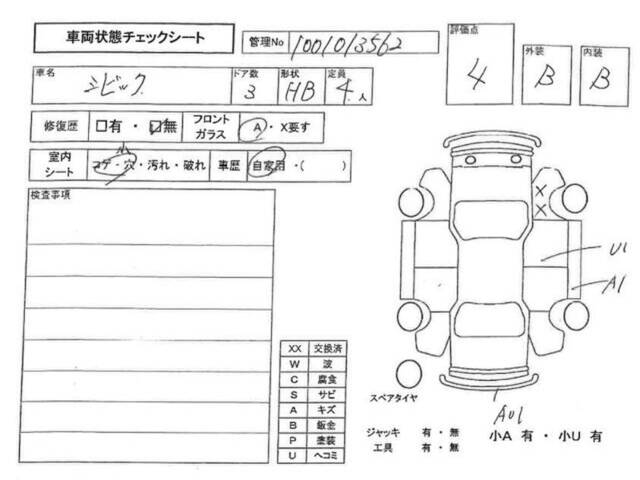 車両状態チェックシート
管理No 1001013562
評価点 4
外装 B
内装 B
車名 シビック
ドア数 3
形状 HB
定員 4 人
修復歴 □有・☑無
フロントガラス A・X要す
室内シート コゲ・穴・汚れ・破れ
車歴 自家用・( )
検査事項
XX
U1
A1
XX 交換済
W 波
C 腐食
S サビ
A キズ
B 鈑金
P 塗装
U ヘコミ
スペアタイヤ
AU1
ジャッキ 有・無
工具 有・無
小A 有・小U 有